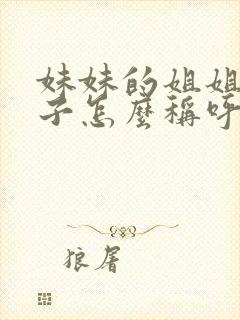 妹妹的姐姐
子怎麼稱呼
狼屠